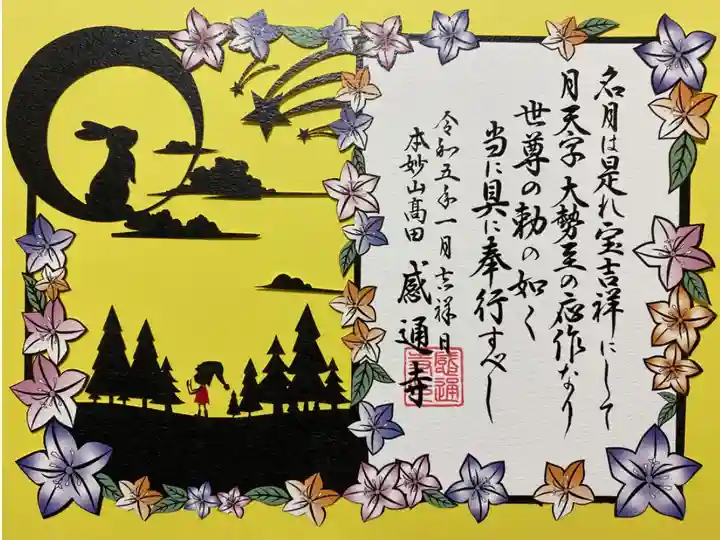 名月は是れ宝吉祥にして
月天子 大勢至の応作なり
世尊の勅の如く
当に具に奉行すべし
令和五年一月吉祥日
本妙山高田 感通寺